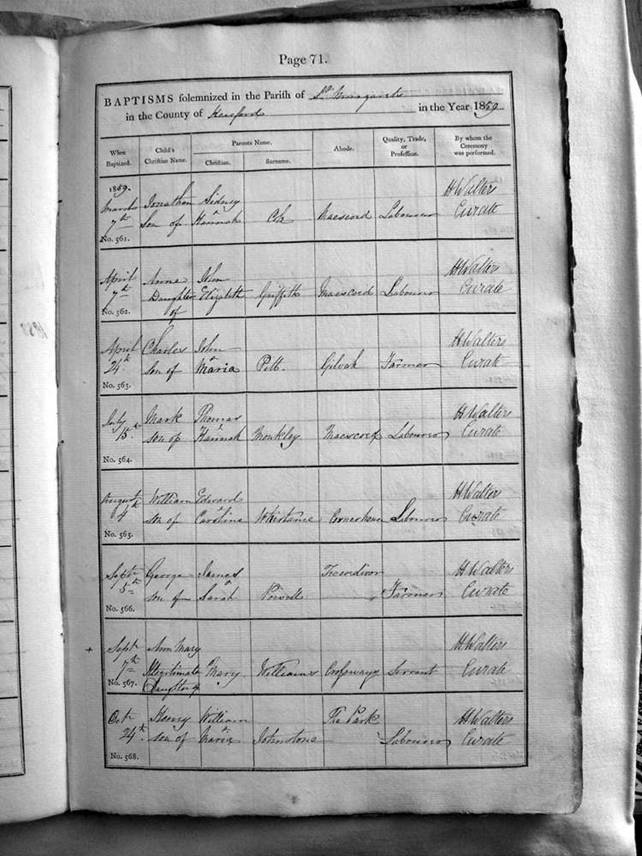 Page 71.
BAPTISMS solemnized in the Parish of St Margarets
in the County of Hereford in the Year 1859
When Baptized. Child's Christian Name. Parents Name. Abode. Quality, Trade, or Profession. By whom the Ceremony was performed.
Christian. Surname.
1859.
March Jonathan Sidney H Walters
7th Son of & Hannah Labourer Curate
No. 561.
April Anne John H Walters
7th Daughter Elizabeth Griffith Maescoed Labourer Curate
of
No. 562.
April Charles John H Walters
24th Son of & Maria Farmer Curate
No. 563.
July Mark Thomas H Walters
son of & Hannah Labourer Curate
No. 564.
August William Edward H Walters
son of Caroline Whistance Labourer Curate
No. 565.
Sept George James H Walters
5th son of & Sarah Powell Farmer Curate
No. 566.
Sept Ann Mary H Walters
7th Illegitimate Mary Williams Servant Curate
No. 567. Daughter of
Oct Henry William The Park H Walters
24th son of & Maria Johnstone Labourer Curate
No. 568.